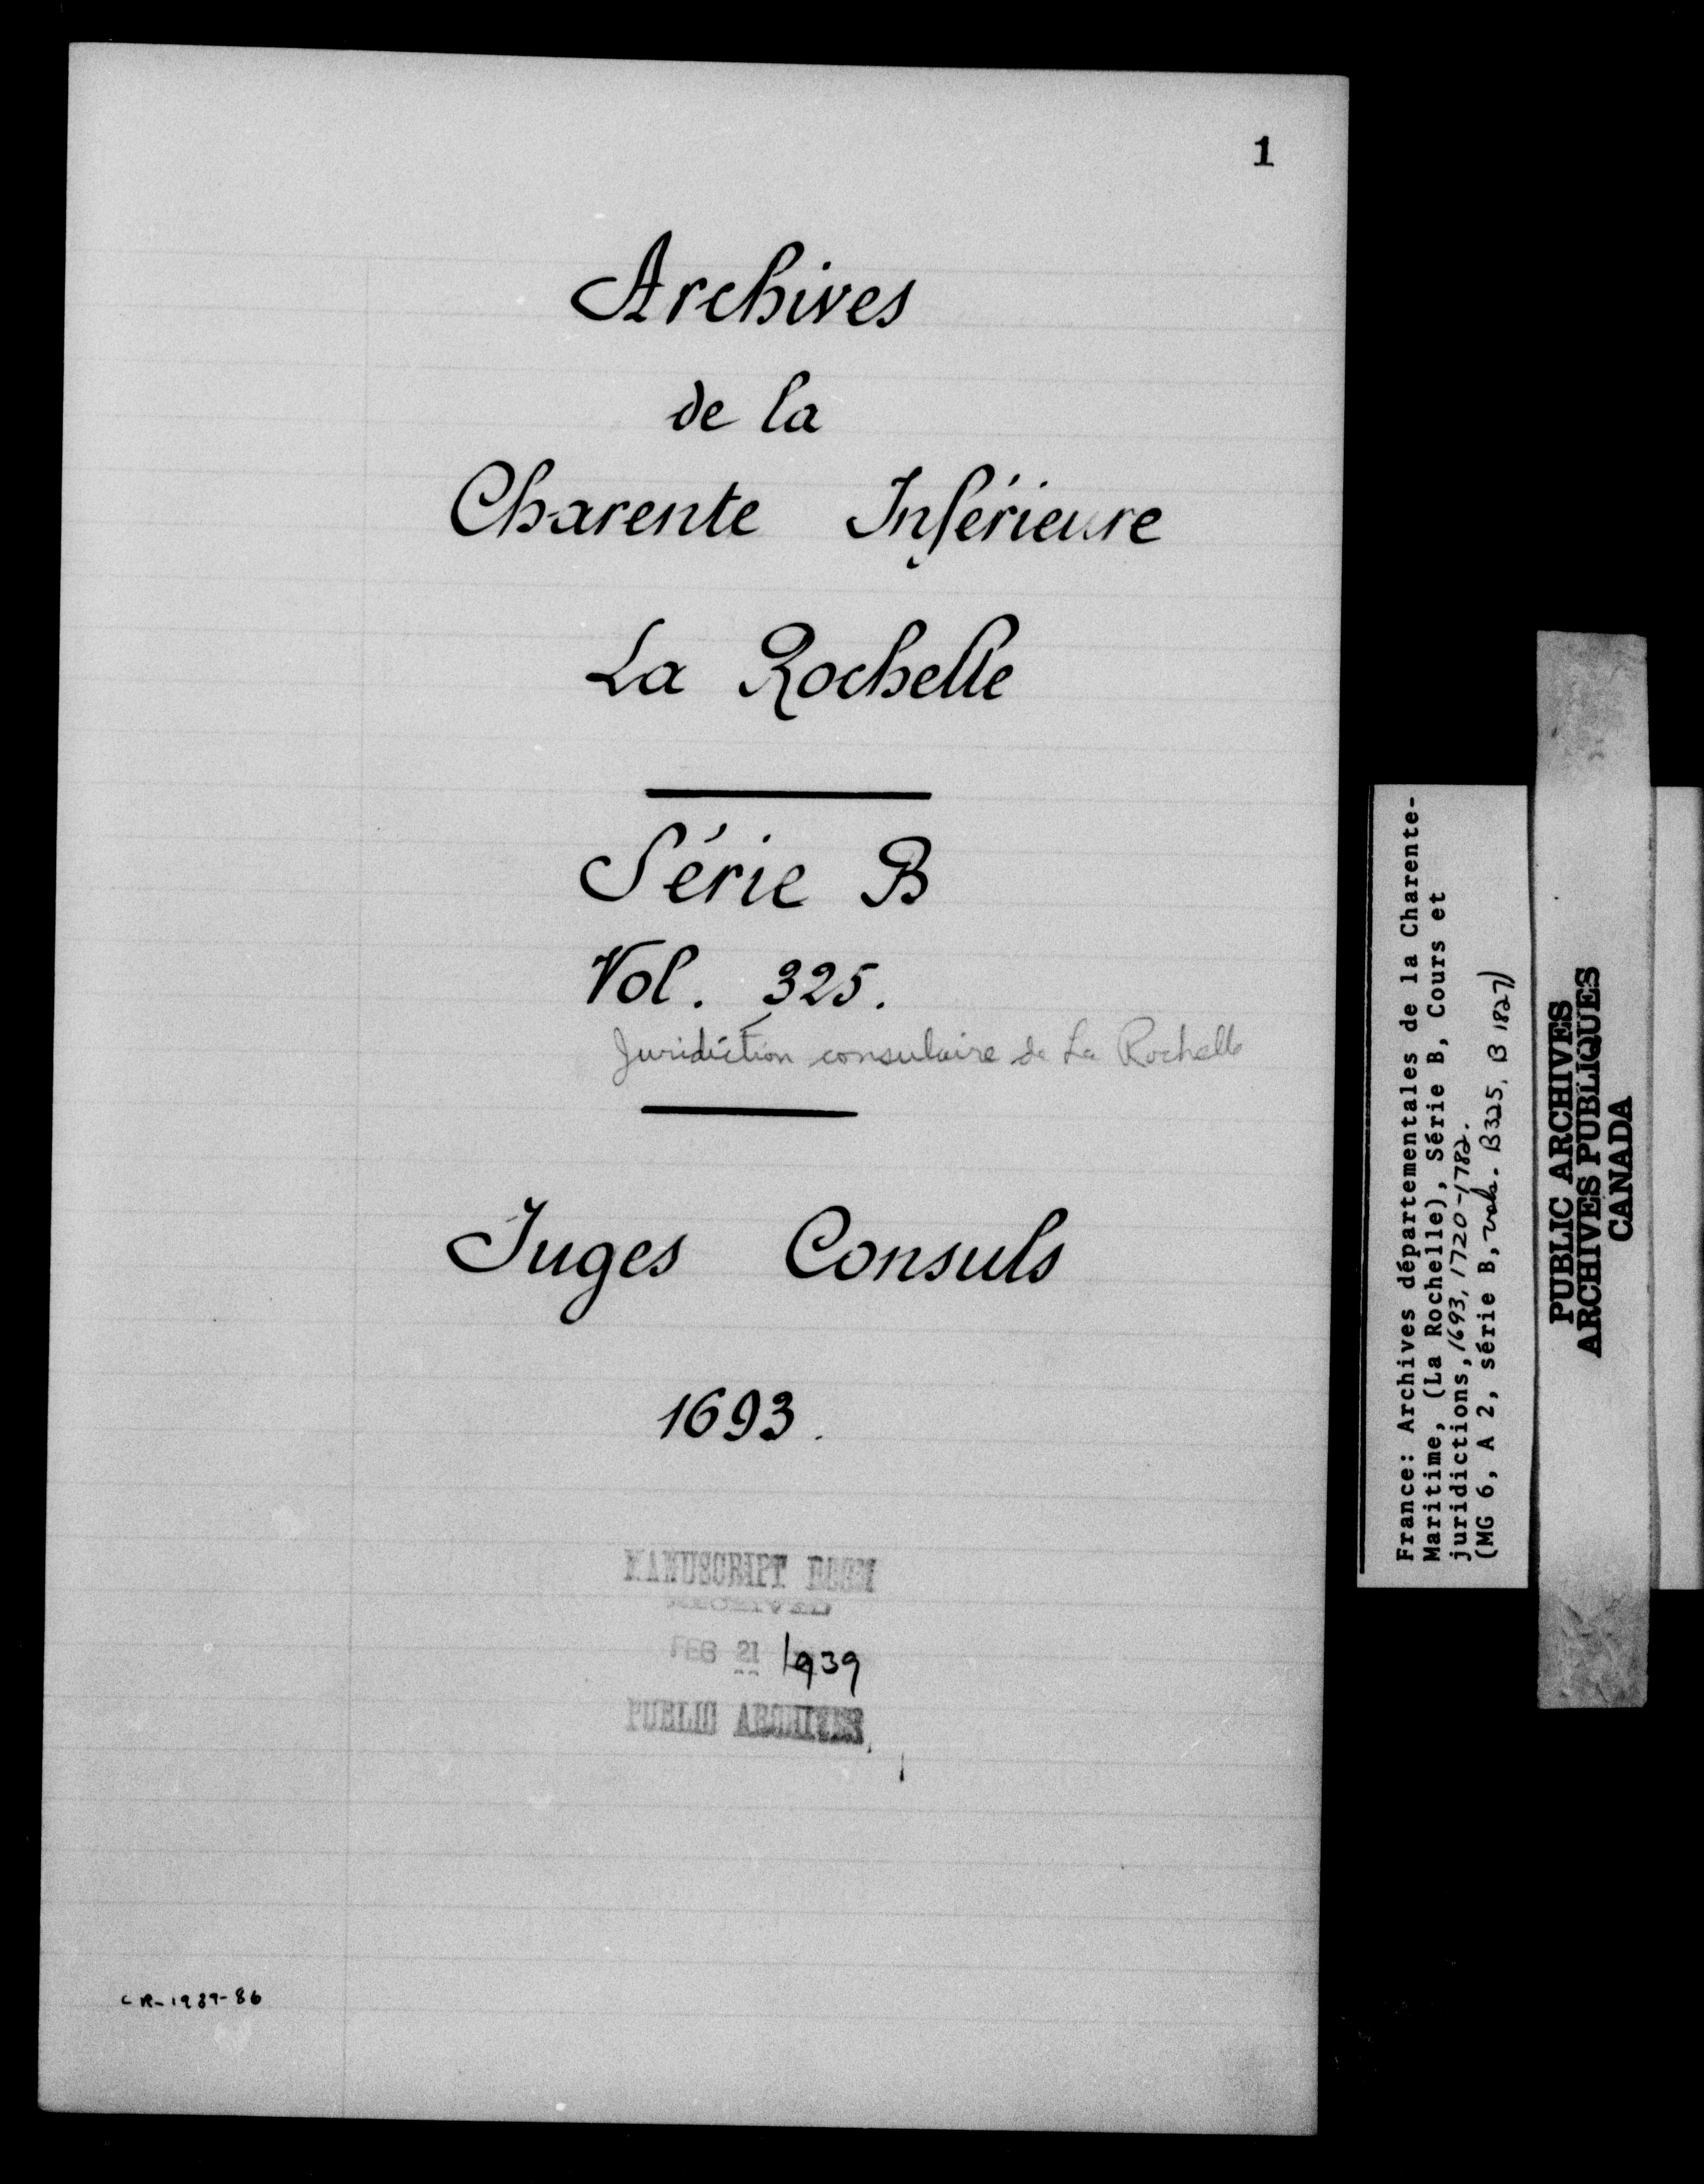 1
Archives
de la
Charente Inférieure
La Rochelle
Série B
Vol. 325.
Juridiction consulaire de La Rochelle
Juges Consuls
1693.
MANUSCRIPT ROOM
RECEIVED
FEB 21 1939
PUBLIC ARCHIVES
CR-1939-86
France: Archives départementales de la Charente-
Maritime, (La Rochelle), Série B, Cours et
juridictions, 1693, 1720-1782.
(MG 6, A 2, série B, vols. B325, B 1827)
PUBLIC ARCHIVES
ARCHIVES PUBLIQUES
CANADA